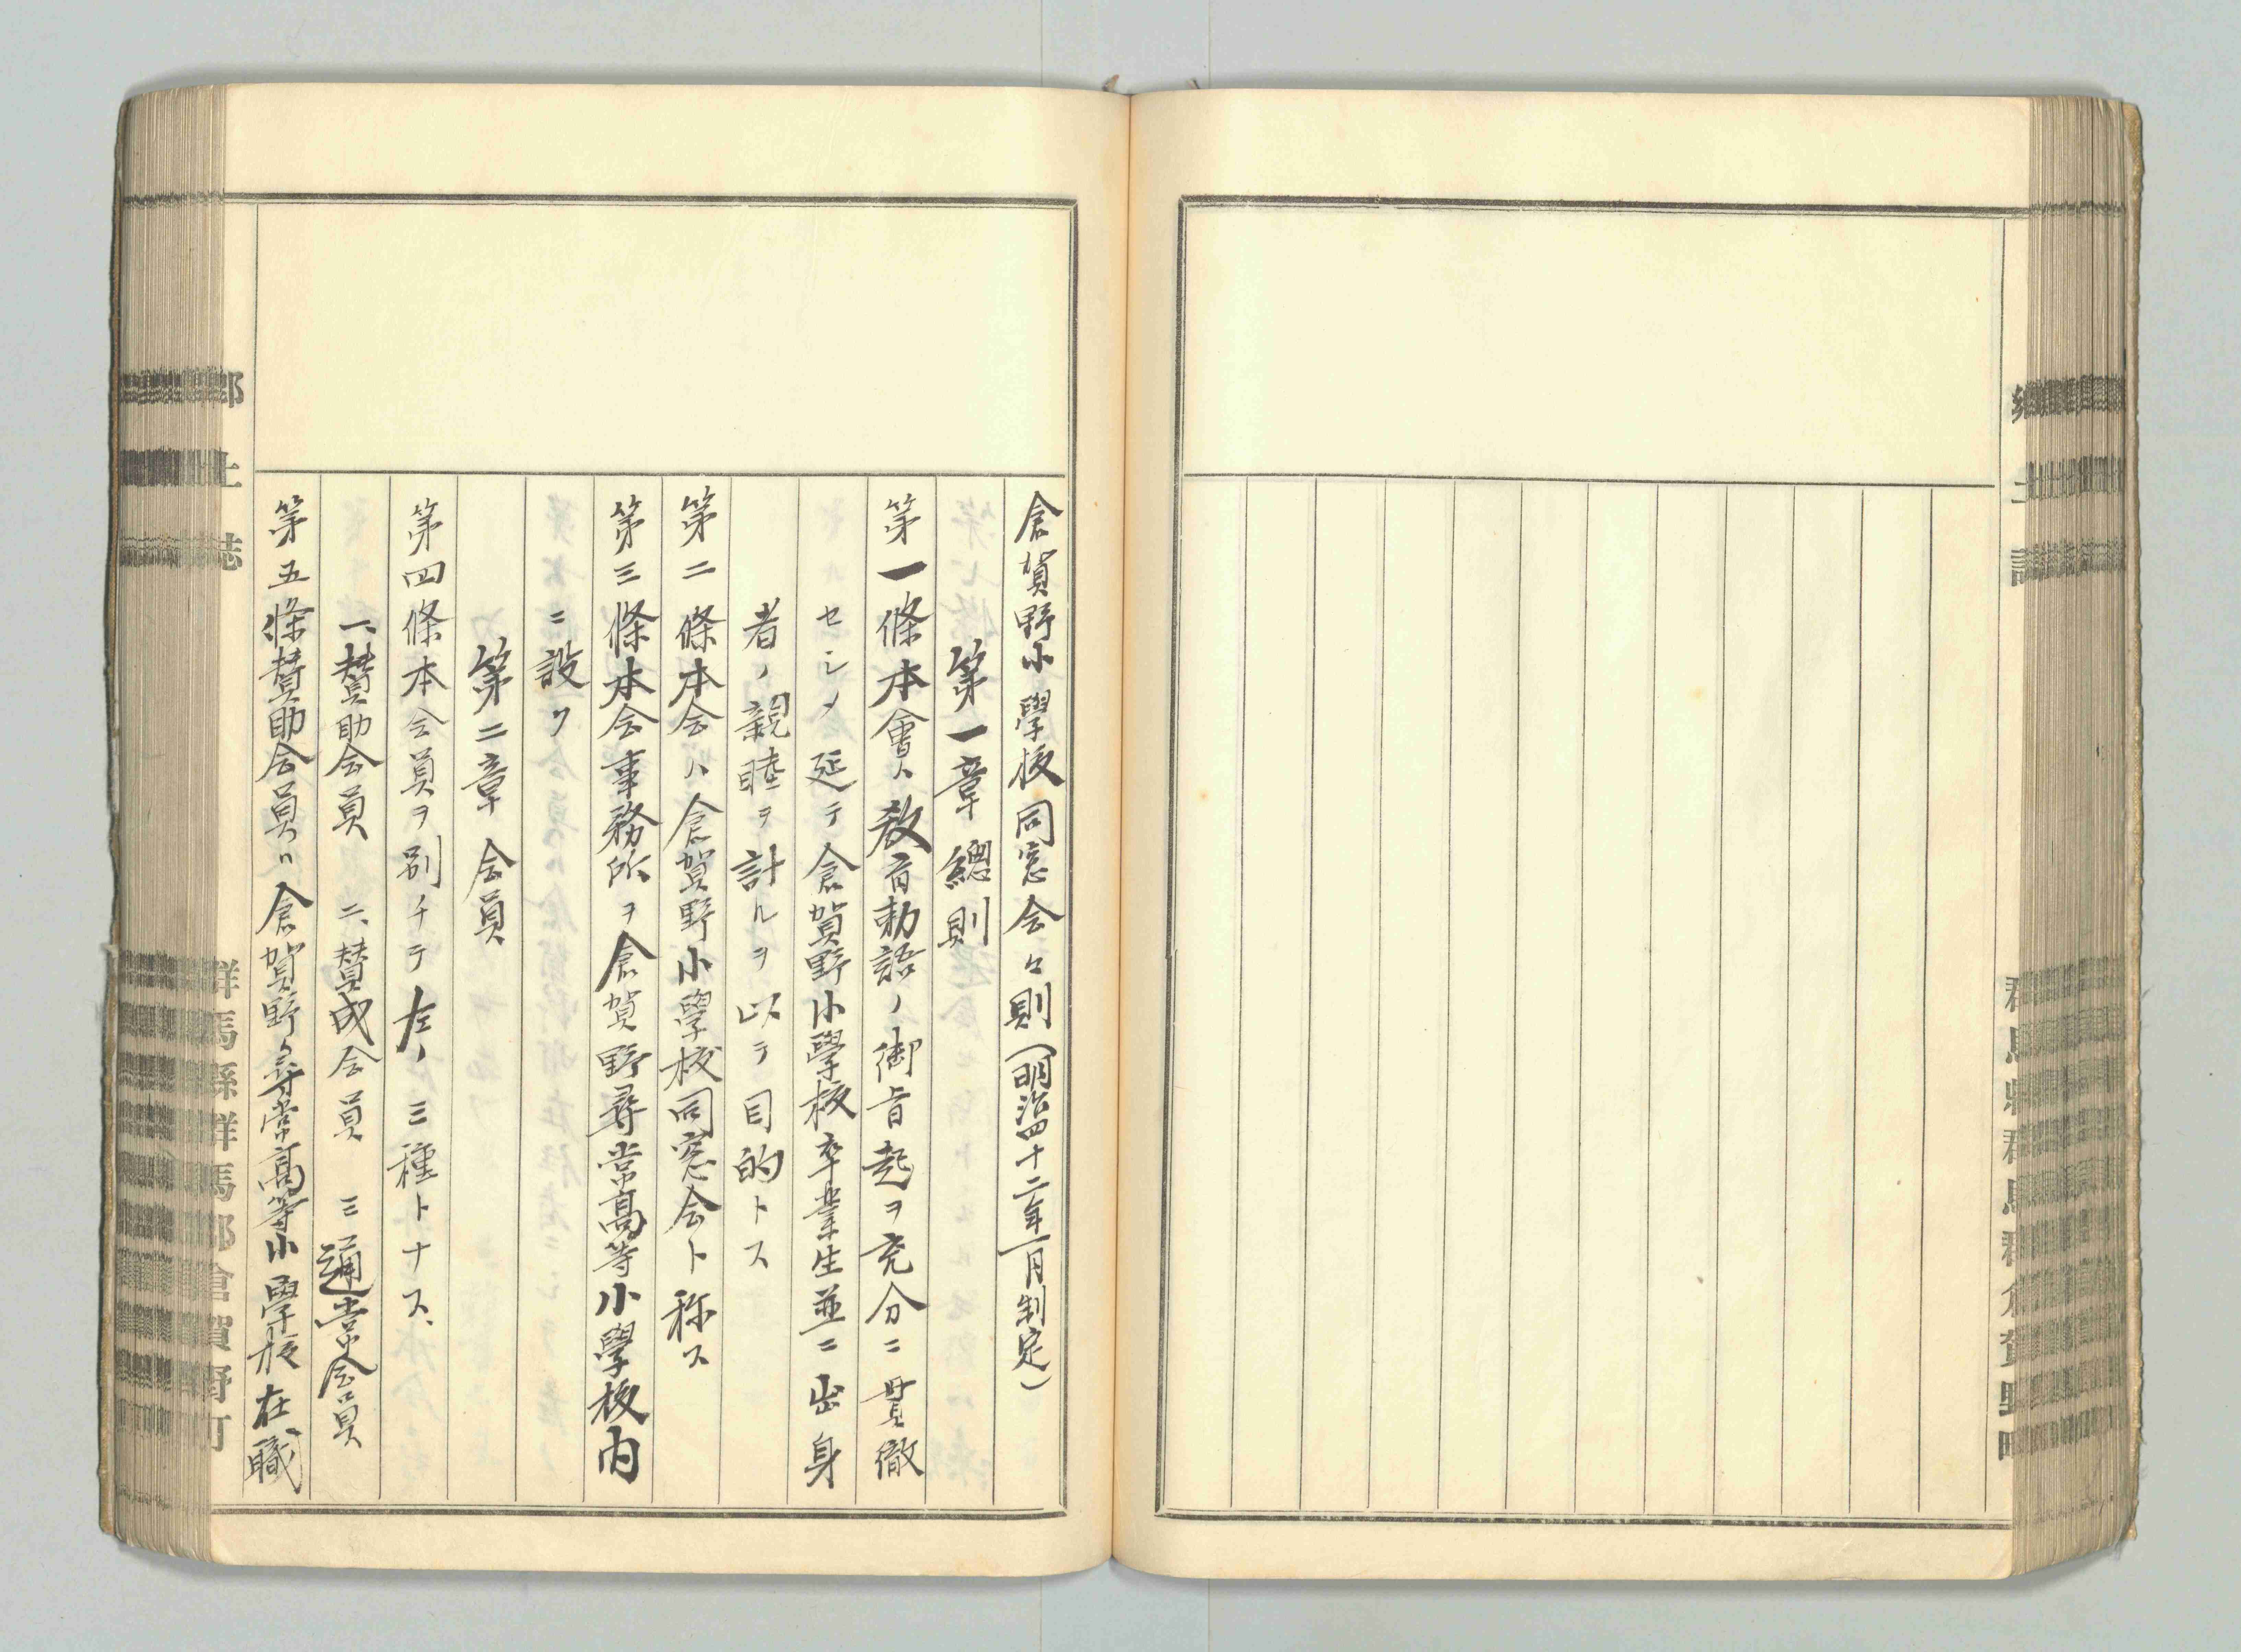 倉賀野小學校同窓会々則（明治四十二年一月制定）
第一章 總則
第一條本會ハ教育勅語ノ御旨起ヲ充分ニ貫徹
セシメ延テ倉賀野小學校卒業生並ニ出身
者ノ親睦ヲ計ルヲ以テ目的トス
第二條本会ハ倉賀野小學校同窓会ト称ス
第三條本会事務所ヲ倉賀野尋常高等小學校内
ニ設ク
第二章 会員
第四條本会員ヲ別チテ左ノ三種トナス、
一、賛助会員 二、賛成会員 三 通常会員
第五條賛助会員ハ倉賀野尋常高等小學校在職
郷土誌
群馬縣群馬郡倉賀野町